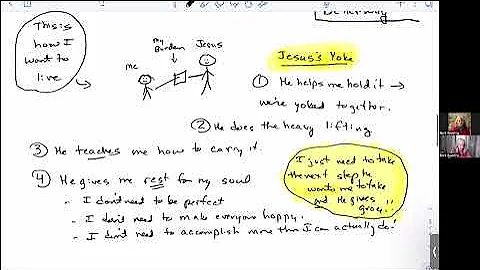 This is
how I
want to
live
me
my
Burden
Jesus
Jesus's Yoke
① He helps me hold it →
we're yoked together.
② He does the heavy lifting
③ He teaches me how to carry it.
④ He gives me rest for my soul
- I don't need to be perfect
- I don't need to make everyone happy.
- I don't need to accomplish more than I can actually do!
I just need to take
the next step He
wants me to take
and He gives
grace!!